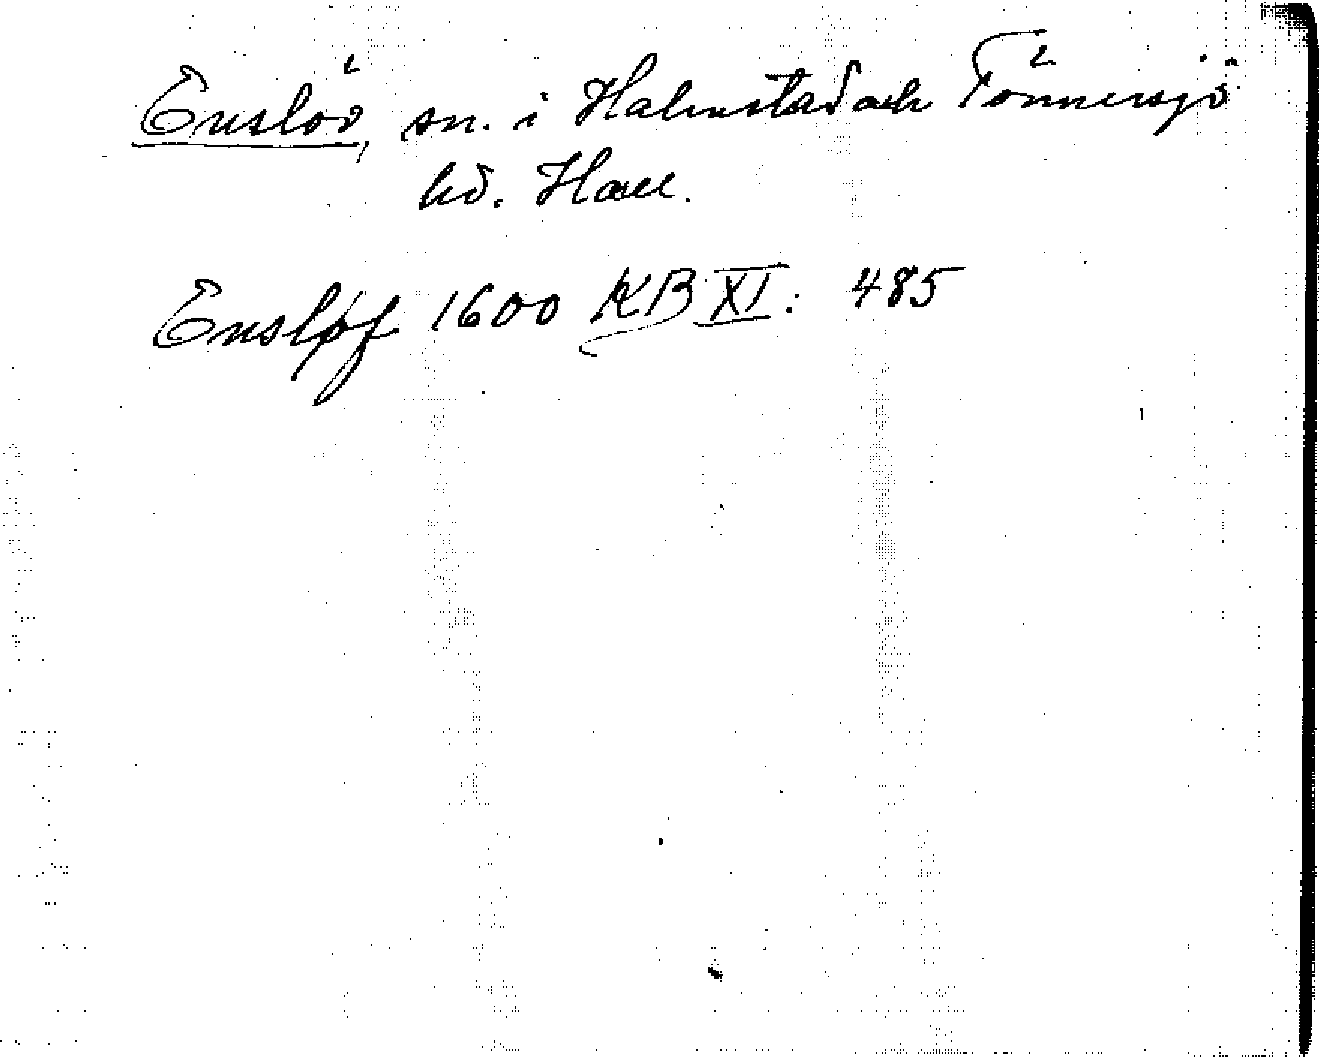 Enslöv, sn. i Halmstad och Tönnersjö
hd. Hall.
Ensløf 1600 KB XI: 485